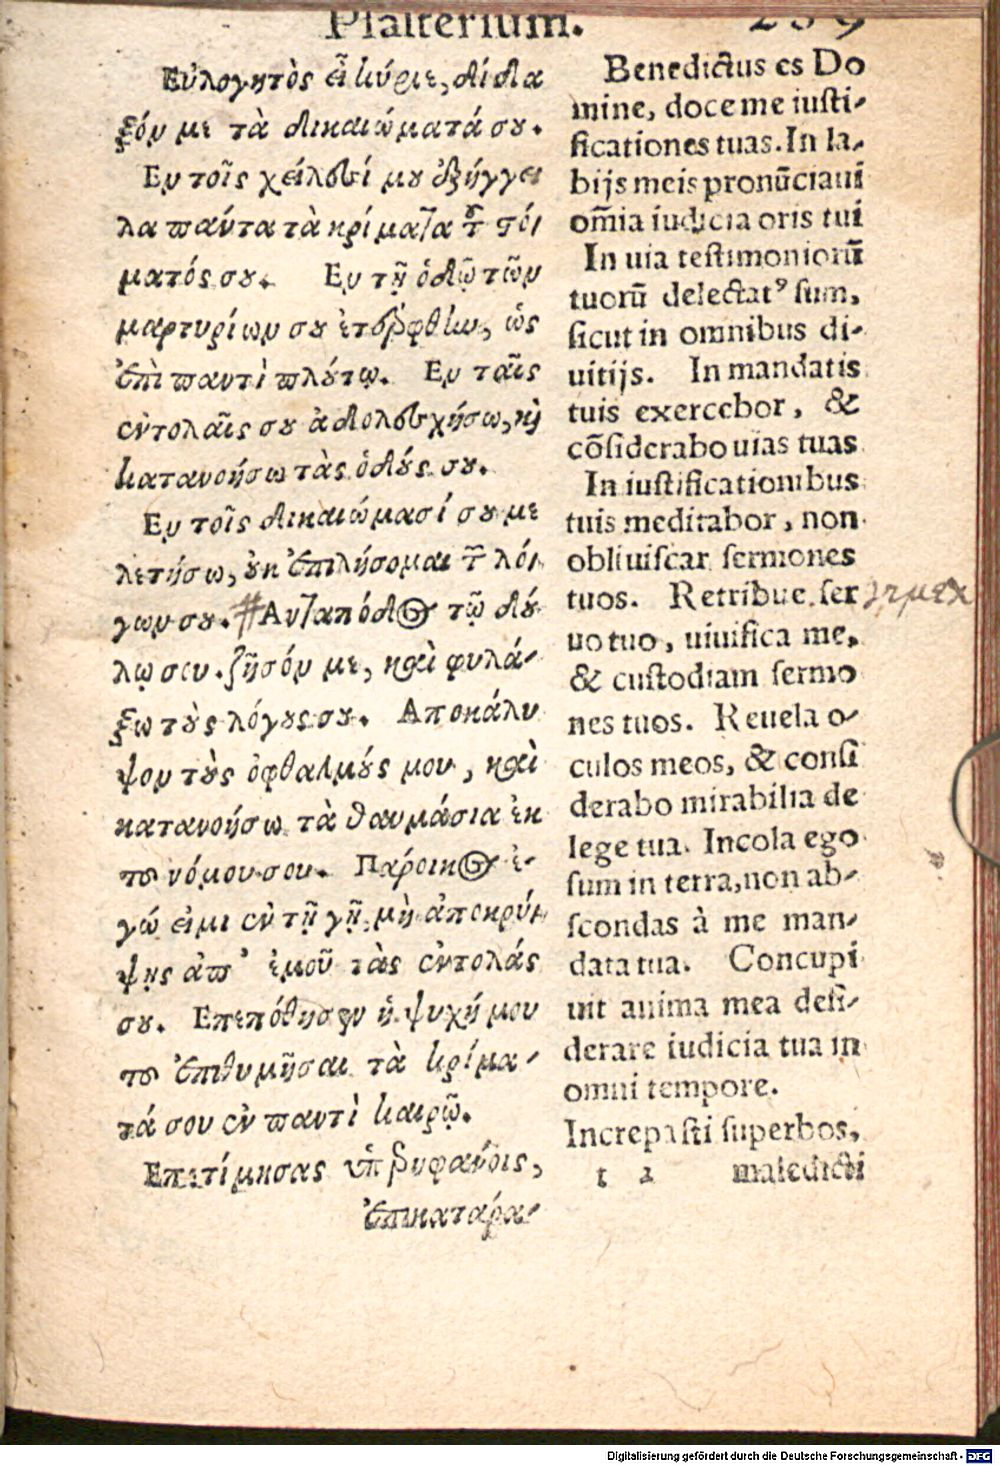 Psalterium. 289
Εὐλογητὸς εἶ κύριε, δίδα
ξόν με τὰ δικαιώματά σου.
Εν τοῖς χείλεσί μου ἐξήγγει
λα πάντα τὰ κρίματα τοῦ στό-
ματός σου. Εν τῇ ὁδῷ τῶν
μαρτυρίων σου ἐτέρφθην, ὡς
ἐπὶ παντὶ πλούτῳ. Εν ταῖς
ἐντολαῖς σου ἀδολεσχήσω, καὶ
κατανοήσω τὰς ὁδούς σου.
Εν τοῖς δικαιώμασί σου με
λετήσω, οὐκ ἐπιλήσομαι τῶν λό-
γων σου. # Ανταπόδος τῷ δού
λῳ σου. ζῆσόν με, καὶ φυλά-
ξω τοὺς λόγους σου. Αποκάλυ
ψον τοὺς ὀφθαλμούς μου, καὶ
κατανοήσω τὰ θαυμάσια ἐκ
τοῦ νόμου σου. Πάροικος ἐ-
γώ εἰμι ἐν τῇ γῇ μὴ ἀποκρύ-
ψῃς ἀπ' ἐμοῦ τὰς ἐντολάς
σου. Επεπόθησεν ἡ ψυχή μου
τοῦ ἐπιθυμῆσαι τὰ κρίμα-
τά σου ἐν παντὶ καιρῷ.
Επετίμησας ὑπερηφάνοις,
ἐπικατάρα-
Benedictus es Do
mine, doce me iusti-
ficationes tuas. In la-
bijs meis pronūciaui
om̄ia iudicia oris tui
In uia testimoniorū
tuorū delectatꝰ sum,
sicut in omnibus di-
uitijs. In mandatis
tuis exercebor, &
cōsiderabo uias tuas
In iustificationibus
tuis meditabor, non
obliuiscar sermones
tuos. Retribue ser
uo tuo, uiuifica me,
& custodiam sermo
nes tuos. Reuela o-
culos meos, & consi
derabo mirabilia de
lege tua. Incola ego
sum in terra, non ab-
scondas à me man-
data tua. Concupi
uit anima mea desi-
derare iudicia tua in
omni tempore.
Increpasti superbos,
t 2 maledicti
Digitalisierung gefördert durch die Deutsche Forschungsgemeinschaft - DFG